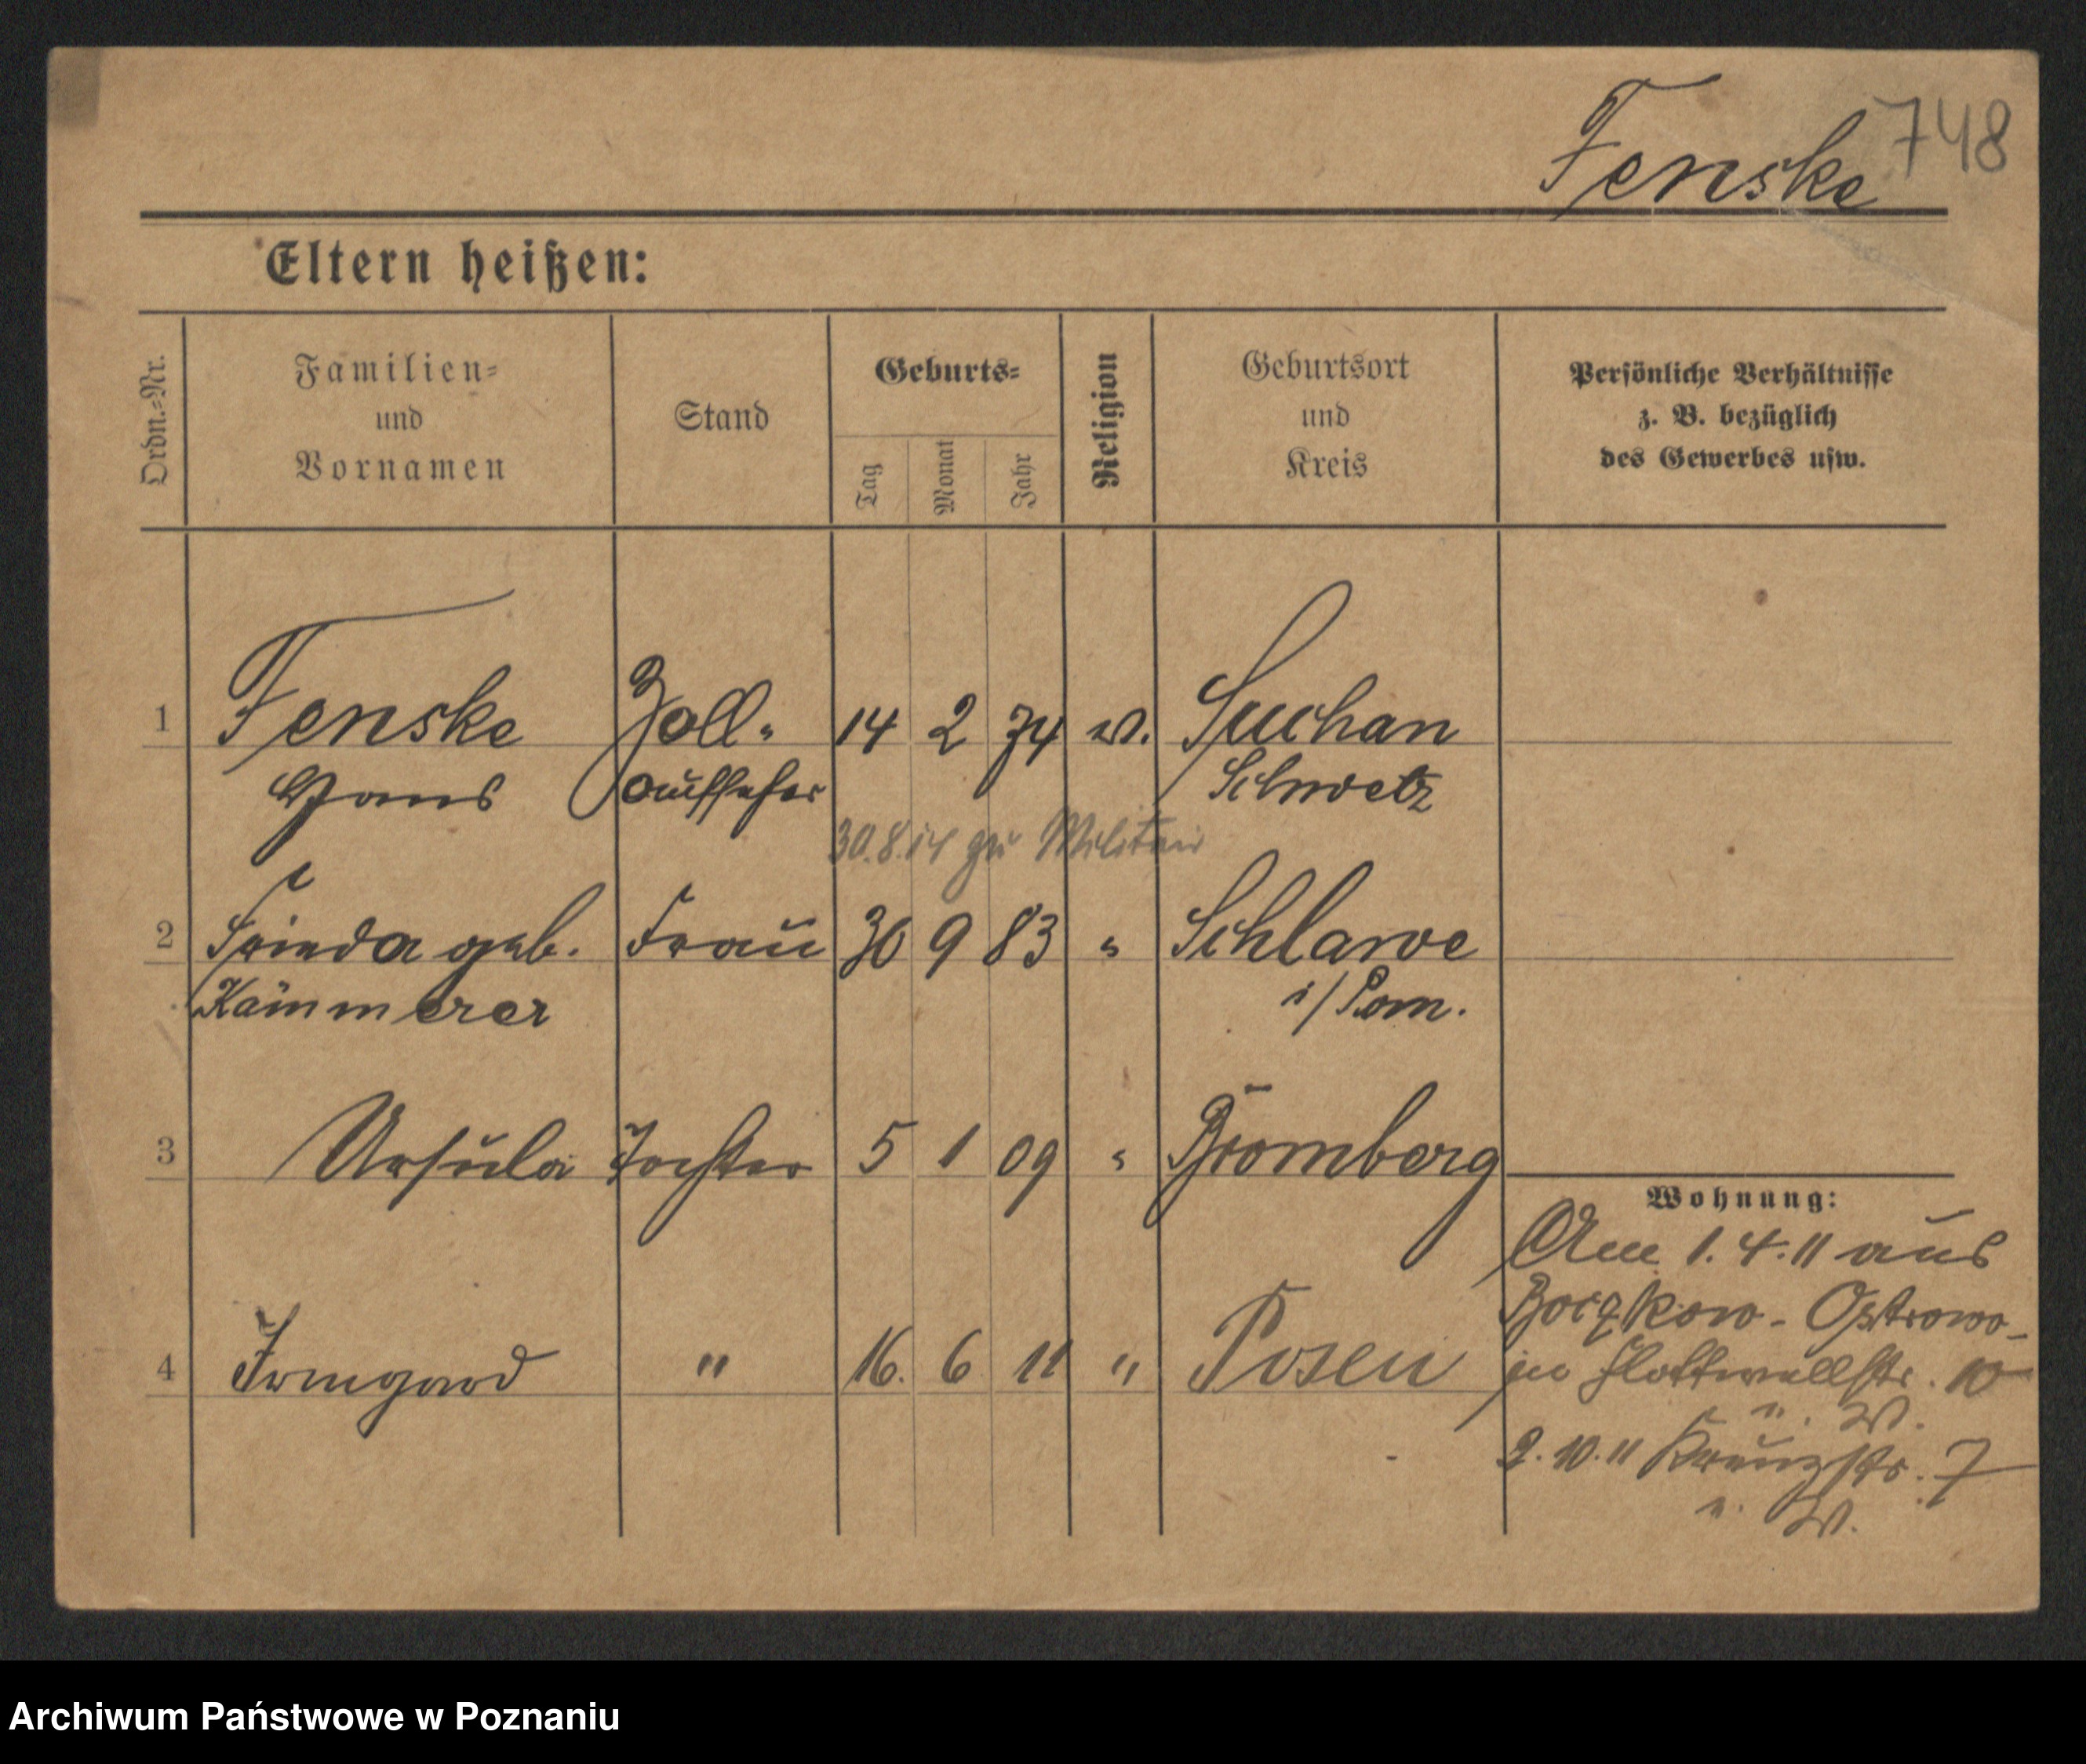 748
Fenske
Eltern heißen:
Ordn.-Nr.
Familien-
und
Vornamen
Stand
Geburts-
Tag
Monat
Jahr
Religion
Geburtsort
und
Kreis
Persönliche Verhältnisse
z. B. bezüglich
des Gewerbes usw.
1 Fenske Zoll- 14 2 74 ev. Suchan
Hans aufseher Schwetz
30.8.14 zu Militair
2 Frieda geb. Frau 30 9 83 " Schlawe
Kämmerer i/Pom.
3 Ursula Tochter 5 1 09 " Bromberg
Wohnung:
Am 1.4.11 aus
Ostrowo-
4 Irmgard " 16. 6 11 " Posen
in Flottwellstr. 10
u. W.
2.10.11 Kreuzstr. 7
u. W.
Archiwum Państwowe w Poznaniu